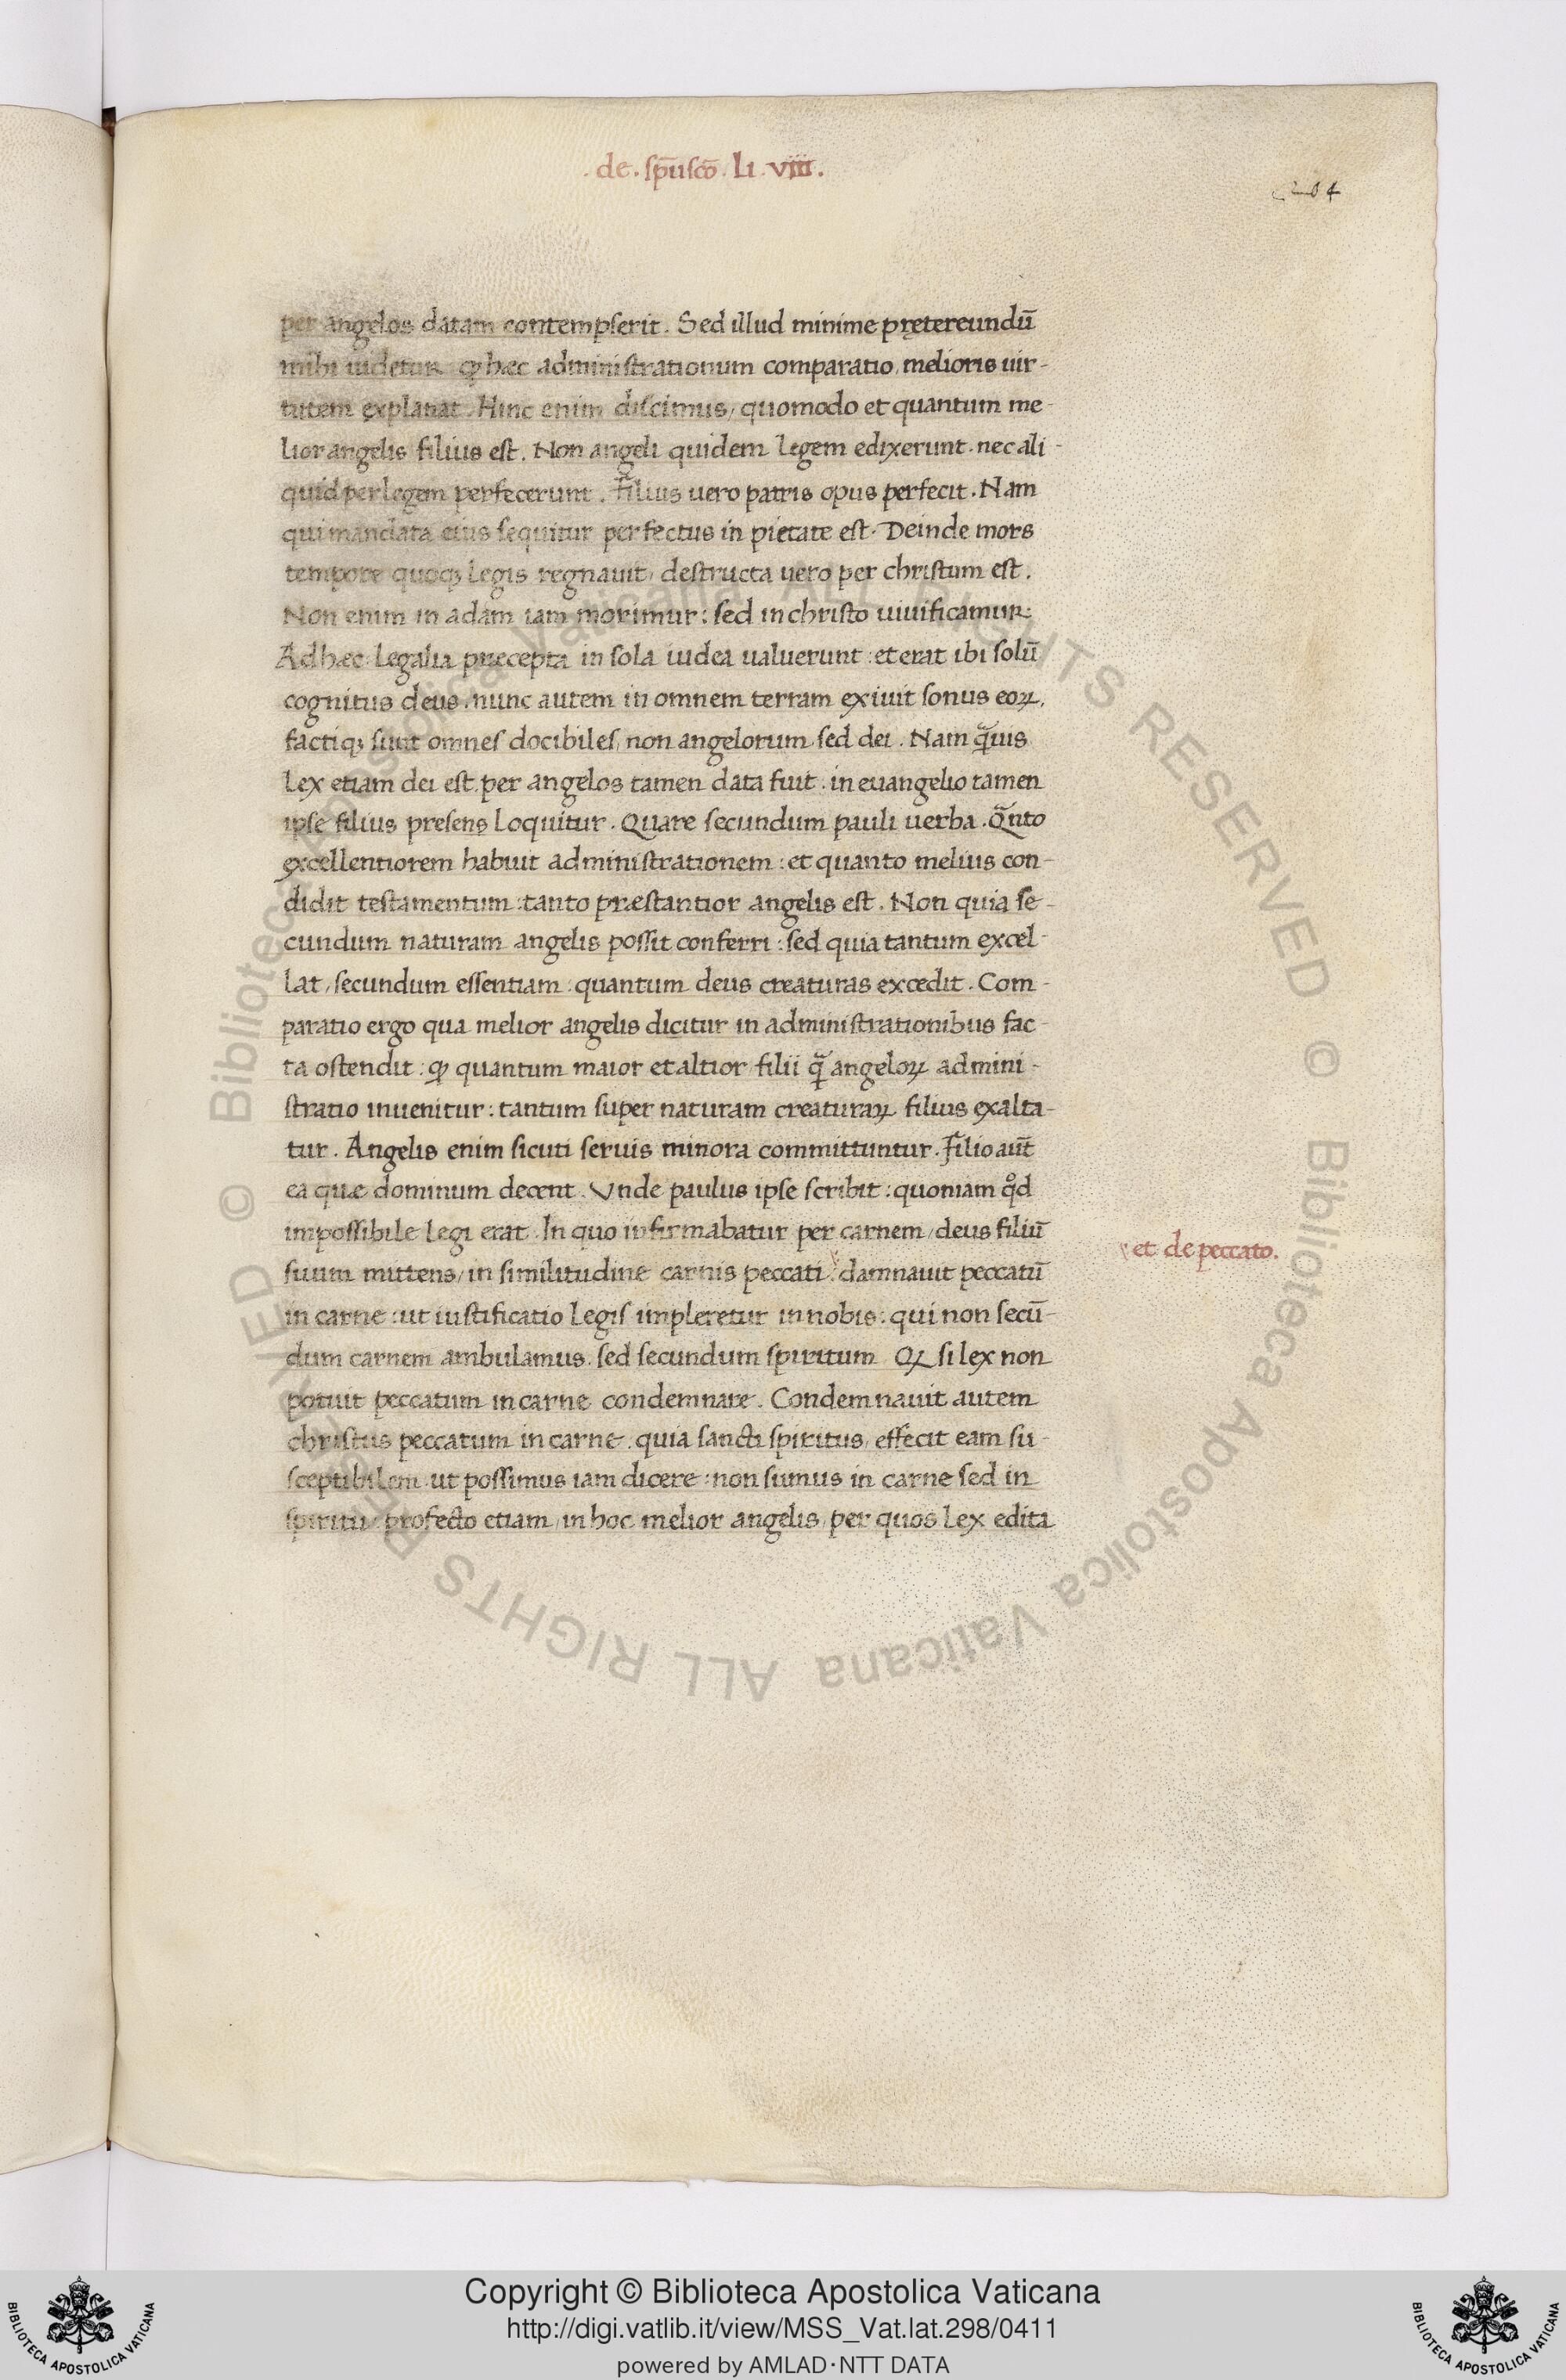 . de . sp̄uscō . Li . viii .
per angelos datam contempserit . Sed illud minime prętereundū
mihi uidetur ꝙ hæc administrationum comparatio , melioris uir-
tutem explanat . Hinc enim discimus , quomodo et quantum me-
lior angelis filius est . Non angeli quidem legem edixerunt . nec ali-
quid per legem perfecerunt . Filius uero patris opus perfecit . Nam
qui mandata eius sequitur perfectus in pietate est . Deinde mors
tempore quoqꝫ legis regnauit , destructa uero per christum est .
Non enim in adam iam morimur : sed in christo uiuificamur :
Ad hæc legalia præcepta in sola iudea ualuerunt : et erat ibi solū
cognitus deus . nunc autem in omnem terram exiuit sonus eoꝝ .
factiqꝫ sunt omnes docibiles , non angelorum sed dei . Nam q̄uis
Lex etiam dei est . per angelos tamen data fuit . in euangelio tamen
ipse filius presens loquitur . Quare secundum pauli uerba . Q̄nto
excellentiorem habuit administrationem : et quanto melius con-
didit testamentum : tanto præstantior angelis est . Non quia se-
cundum naturam angelis possit conferri : sed quia tantum excel-
lat , secundum essentiam : quantum deus creaturas excedit . Com-
paratio ergo qua melior angelis dicitur in administrationibus fac-
ta ostendit : ꝙ quantum maior et altior filii q̄ angeloꝝ admini-
stratio inuenitur : tantum super naturam creaturaꝝ filius exalta-
tur . Angelis enim sicuti seruis minora committuntur . Filio aūt
ea quæ dominum decent . Vnde paulus ipse scribit : quoniam qͦd
impossibile legi erat . In quo infirmabatur per carnem , deus filiū
suum mittens , in similitudine carnis peccati : damnauit peccatū
et de peccato .
in carne : ut iustificatio legis impleretur in nobis : qui non secū-
dum carnem ambulamus . sed secundum spiritum Qꝫ si lex non
potuit peccatum in carne condemnare . Condemnauit autem
christus peccatum in carne . quia sancti spiritus , effecit eam su-
sceptibilem . ut possimus iam dicere : non sumus in carne sed in
spiritu , profecto etiam , in hoc melior angelis , per quos lex edita
© Biblioteca Apostolica Vaticana ALL RIGHTS RESERVED © Biblioteca Apostolica Vaticana ALL RIGHTS RESERVED
Copyright © Biblioteca Apostolica Vaticana
http://digi.vatlib.it/view/MSS_Vat.lat.298/0411
powered by AMLAD·NTT DATA
BIBLIOTECA APOSTOLICA VATICANA
BIBLIOTECA APOSTOLICA VATICANA